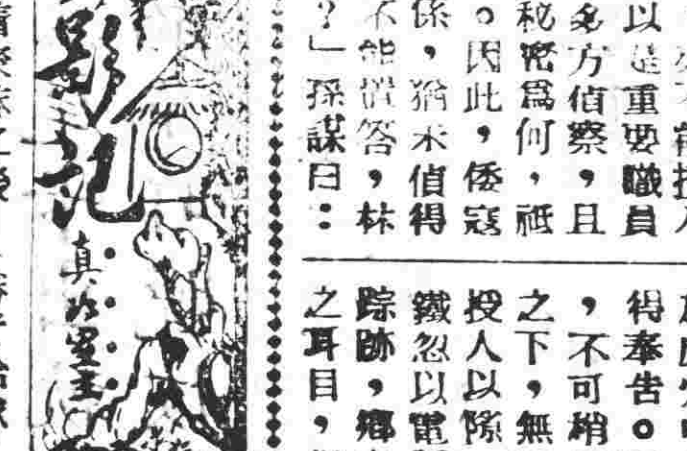 以是重要職員
多方偵察，且
秘密爲何，祗
。因此，倭寇
係，猶未偵得
不能置答，林
？」孫謀曰：
得奉告。
，不可稍
之下，無
授人以隙
鐵忽以電
踪跡，鄉
之耳目，
影記
室主